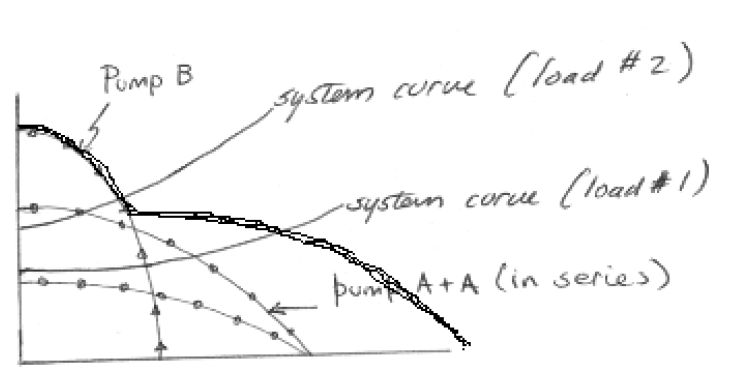 Pump B
system curve (load #2)
system curve (load #1)
pump A+A (in series)